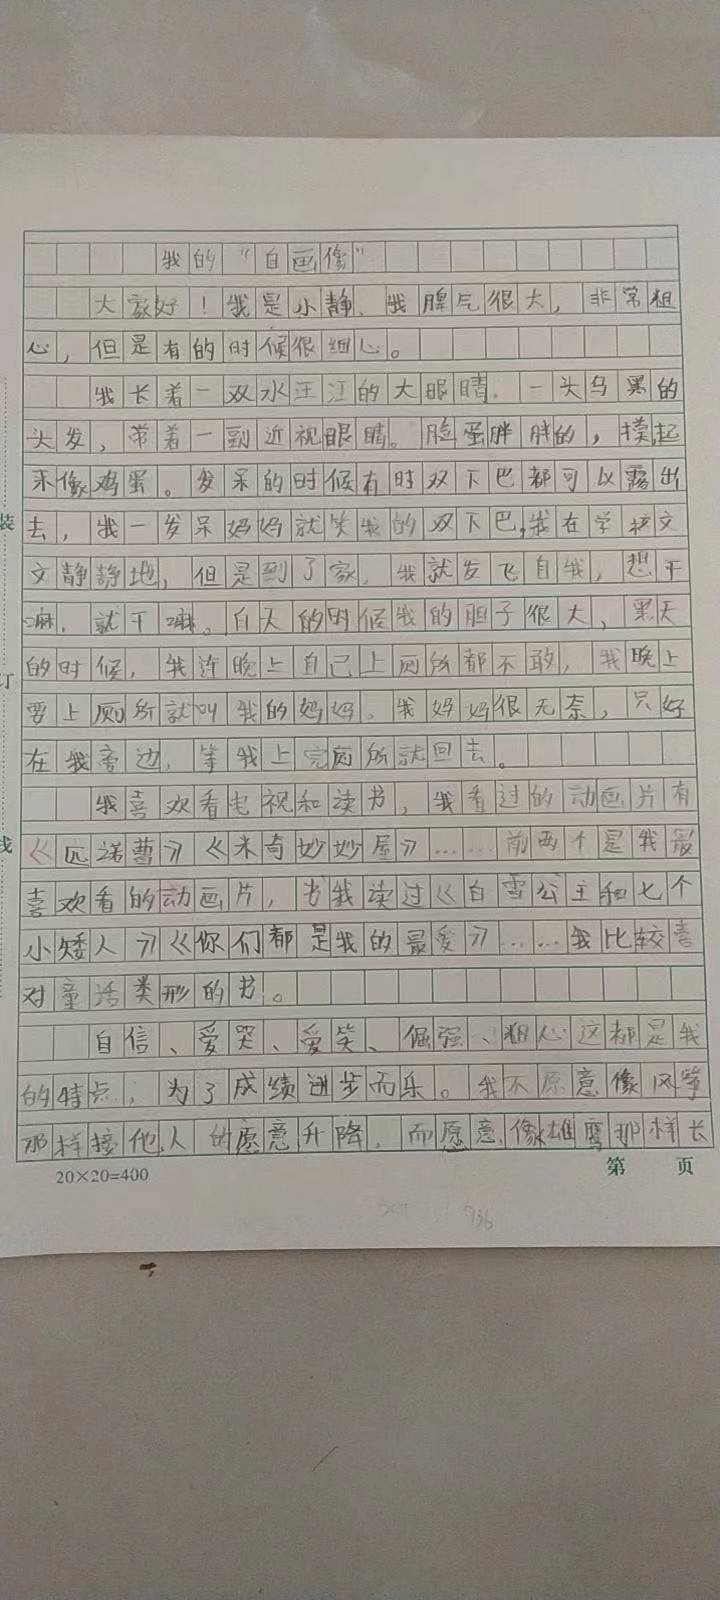 我的“自画像”
大家好！我是小静，我脾气很大，非常粗
心，但是有的时候很细心。
我长着一双水汪汪的大眼睛，一头乌黑的
头发，带着一副近视眼睛。脸蛋胖胖的，摸起
来像鸡蛋。发呆的时候有时双下巴都可以露出
去，我一发呆妈妈就笑我的双下巴，我在学校文
文静静地，但是到了家，我就发飞自我，想干
嘛，就干嘛。白天的时候我的胆子很大，黑天
的时候，我连晚上自己上厕所都不敢，我晚上
要上厕所就叫我的妈妈，我妈妈很无奈，只好
在我旁边，等我上完厕所就回去。
我喜欢看电视和读书，我看过的动画片有
《匹诺曹》《米奇妙妙屋》……前两个是我最
喜欢看的动画片，书我读过《白雪公主和七个
小矮人》《你们都是我的最爱》……我比较喜
对童话类形的书。
自信、爱哭、爱笑、倔强、粗心这都是我
的特点，为了成绩进步而乐。我不愿意像风筝
那样接他人的愿意升降，而愿意像雄鹰那样长
20×20=400
第 页
装
订
线